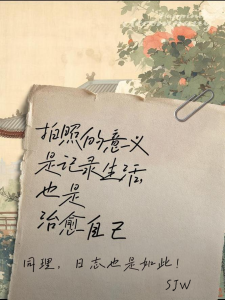 拍照的意义
是记录生活
也是
治愈自己
同理，日志也是如此！
SJW